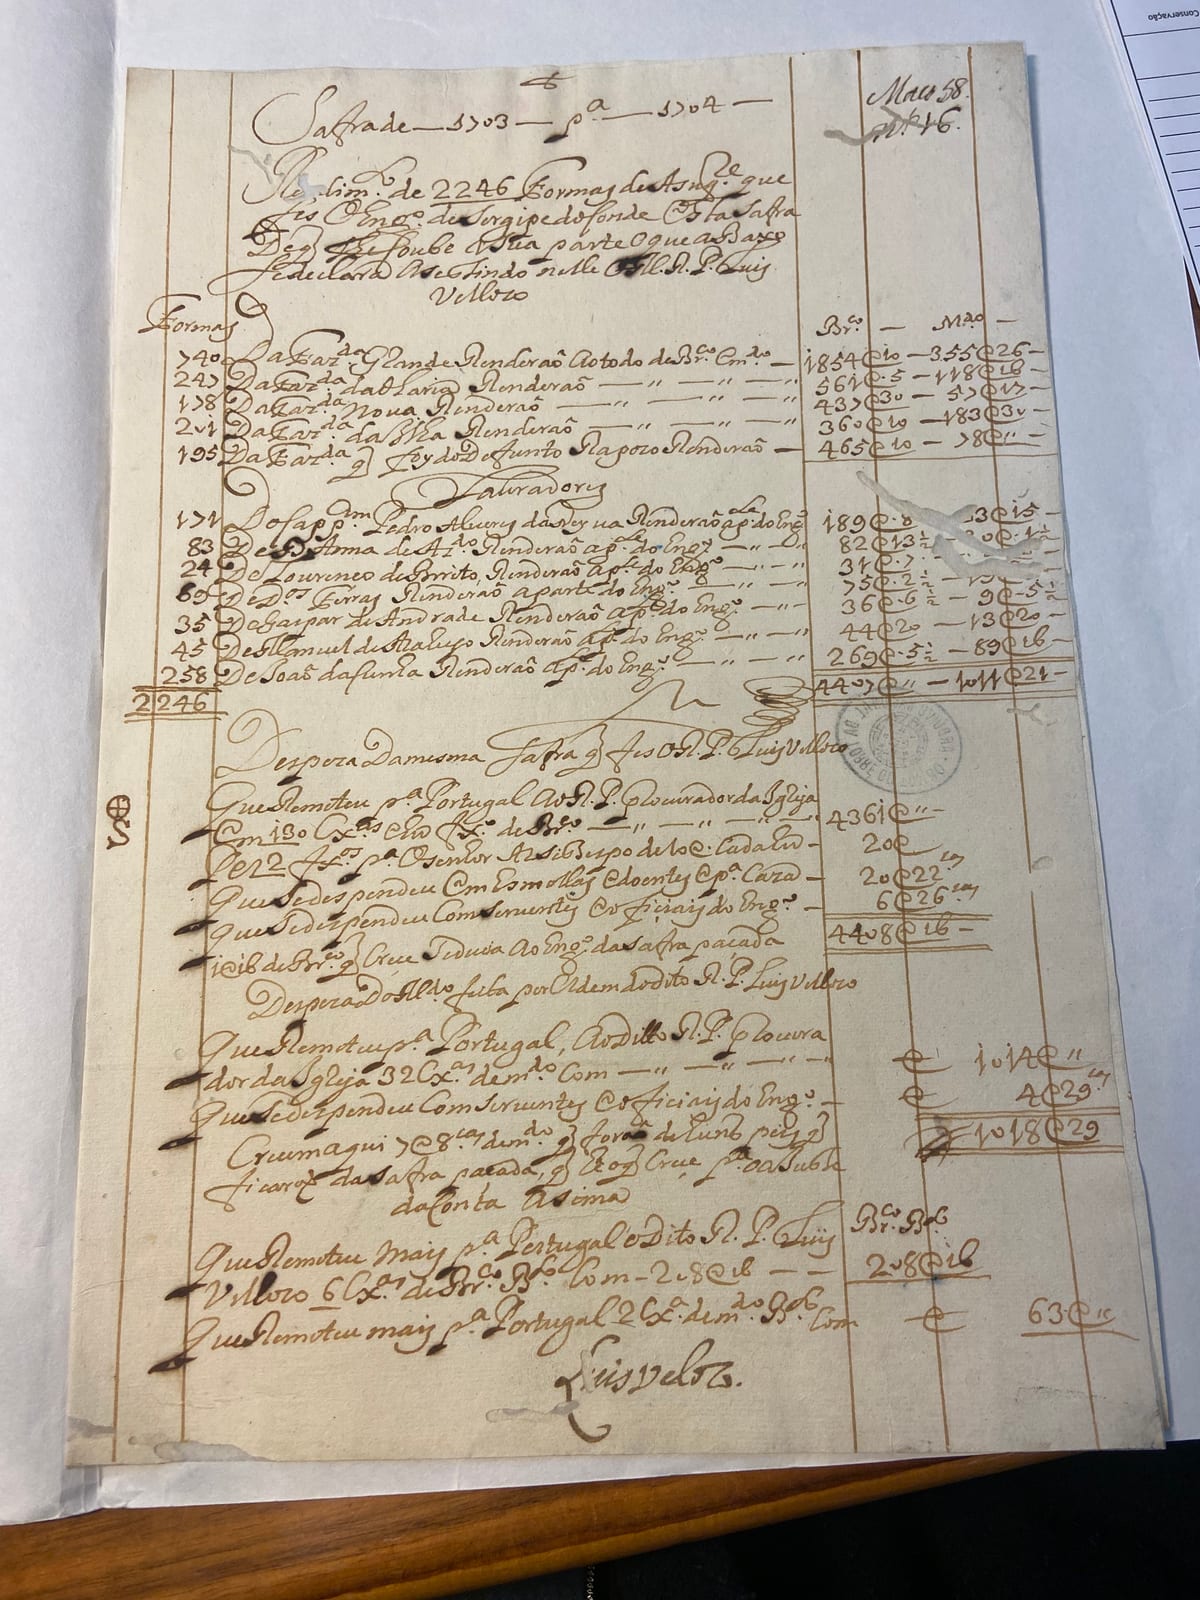 Maço 58.
nº 16.
Safra de — 1703 — pª — 1704 —
Rendimº de 2246 Formas de Asuqre que
fis O Engº de Sergipe do Conde Esta Safra
De q̃ lhe Coube a Sua parte O que a Baxo
Se declara Asestindo nelle O M. R. P. Luis
Vellozo
Formas
Brco — Mdo —
740 Da Fazda Grande Renderaõ Ao todo de Brco Emdo — 1854@10 — 355@26 —
247 Da Fazda da Olaria Renderaõ — " — " — " 561@.5 — 118@16 —
178 Da Fazda Nova Renderaõ — " — " 437@30 — 57@17 —
201 Da Fazda da Ilha Renderaõ — " — " — " 360@10 — 183@30 —
195 Da Fazda q̃ foy do Defunto Rapozo Renderaõ — 465@10 — 78@" —
Lavradores
171 Do Cappam Pedro Alveres das Neves Renderaõ a pte do Engº 189@.8 3@15 —
83 De D. Anna de Azdo Renderaõ a pte do Engº — " — " 82@13½
24 De Lourenco de Britto, Renderaõ a pte do Engº — " — " 31@.7
69 De Dos Ferras Renderaõ a parte do Engº — " — " 75@.2½
35 De Gaspar de Andrade Renderaõ a pte do Engº — " — 36@.6½ — 9@.5½
45 De Manuel de Araujo Renderaõ a pte do Engº — " — " 44@20 — 13@20 —
258 De Joaõ da Cunha Renderaõ a pte do Engº — " — " 269@.5½ — 89@16 —
2246 4407@" — 1011@21 —
Despeza Da mesma Safra q̃ fes O R. P. Luis Vellozo
Que Remoteu pª Portugal Ao R. P. Procurador da Igreja
Em 130 Cxas e hũ fxº de Brco — " — " — " — " 4361@" —
Per 2 fxos pª O Senhor Arsibispo de 10@. Cada hũ — 20@
Que Se despendeu Em Esmollas e doentes e pª Caza — 20@22
Que Se despendeu Com Serventes e oficiais do Engº — 6@26
1@16 de Brco q̃ Crece Se devia Ao Engº da Safra paçada 4408@16 —
Despeza Do Mdo feita por El dem do dito R. P. Luis Vellozo
Que Remoteu pª Portugal, Ao Ditto R. P. Procura
dor da Igreja 32 Cxas de mdo Com — " — " — " — " @ 1014@"
Que Se despendeu Com Serventes e oficiais do Engº — @ 4@29
Crecem aqui 7@8 de mdo q̃ foraõ de huns peis q̃ 1018@29
ficaraõ da Safra paçada, q̃ he o q̃ Crece pª
da Conta Asima
Que Remoteu mais pª Portugal o Dito R. P. Luis Brco Bo
Vellozo 6 Cxas de Brco Bo Com — 208@16 — — 208@16
Que Remoteu mais pª Portugal 2 Cxa. de mdo Bo Com @ 63@"
Luis Veloz.